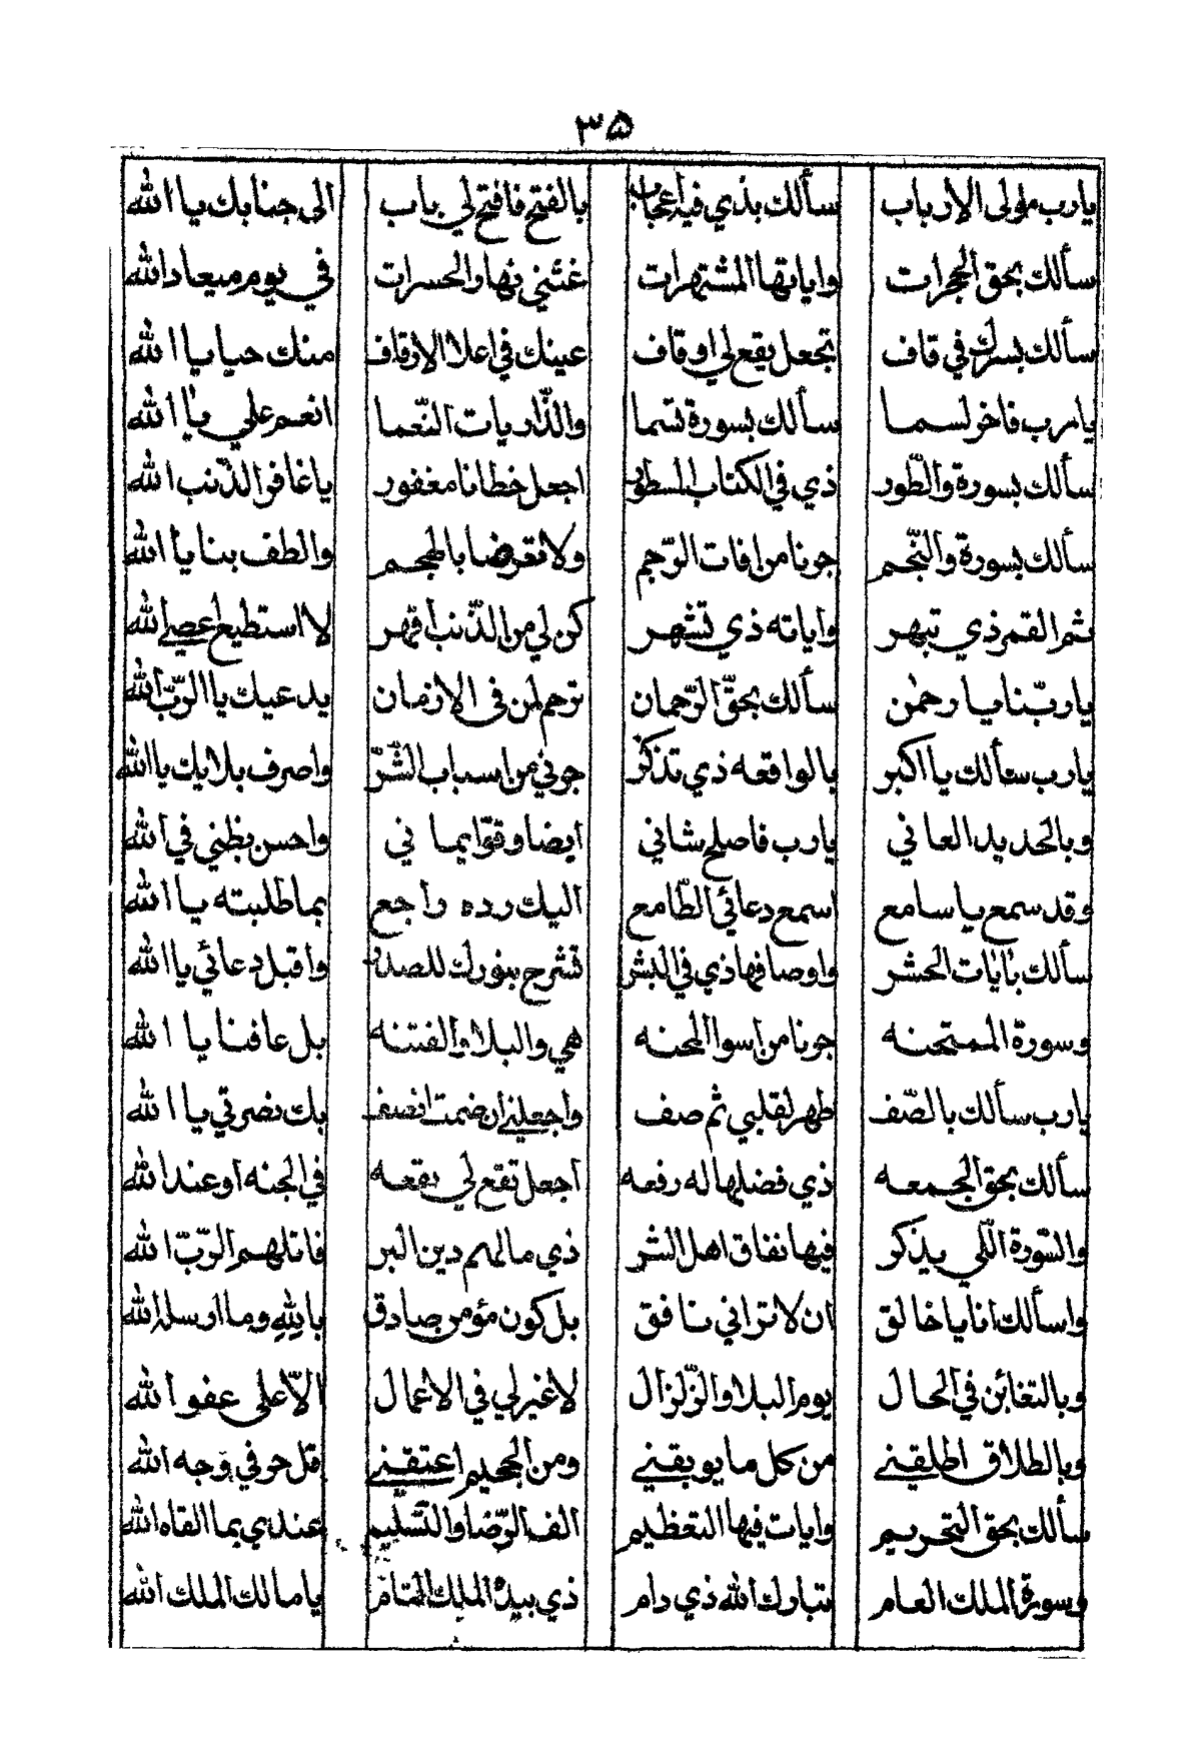 ٣۵
يارب مولى الارباب سألك بذي فيه اعجاب بالفتح فافتح لي باب الى جنابك يا الله
سألك بحق الحجرات واياتها المشتهرات غثني فيها والحسرات في يوم ميعاد الله
سالك بسرك في قاف تجعل يقع لي اوقاف عينك في اعلا الارفاف منك حيا يا الله
يارب فاخولسما سألك بسورة قسما والذّاريات النّعما انعم علي يا الله
سألك بسورة والطّور ذي في الكتاب المسطور اجعل خطانا مغفور يا غافر الذّنب الله
سألك بسورة والنّجم جونا من افات الرّجم ولا تعرضا بالهجم والطف بنا يا الله
ثم القمر ذي تبهر واياته ذي تشهر كن لي من الذّنب اقهر لا استطيع اعصي الله
يا ربّنا يا رحمن سألك بحقّ الرّحمان ترحم لمن في الازمان يدعيك يا الرّبّ الله
يارب سألك يا اكبر بالواقعه ذي تذكّر جوني من اسباب الشّرّ واصرف بلايك يا الله
وبالحديد العاني يارب فاصلح شاني ايضا وقوّ ايماني واحسن بظني في الله
وقد سمع يا سامع اسمع دعائي الطّامع اليك رده راجع بما طلبته يا الله
سألك بآيات الحشر واوصافها ذي في البشر تشرح بنورك للصدر واقبل دعائي يا الله
وسورة الممتحنه جونا من اسوا المحنه هي والبلا والفتنه بل عافنا يا الله
يارب سألك بالصّف طهر لقلبي ثم صف واجعلني ان ضمت انصف بك نصرتي يا الله
سألك بحق الجمعه ذي فضلها له رفعه اجعل تقع لي بقعه في الجنه او عند الله
والسّورة اللّي يذكر فيها نفاق اهل الشر ذي مالهم دين البر قاتلهم الرّبّ الله
واسألك انا يا خالق ان لا تراني نافق بل كون مؤمن صادق بالله وما اوسله الله
وبالتغابن في الحال يوم البلا والزّلزال لا غير لي في الاعمال الاّ على عفو الله
وبالطلاق اطلقني من كل ما يوبقني ومن الجحيم اعتقني قل حر في وجه الله
سألك بحق التحريم وايات فيها التعظيم الف الرّضا والتّسليم عندي بما القاه الله
وسورة الملك العام تبارك الله ذي دام ذي بيده الملك التام يا مالك الملك الله